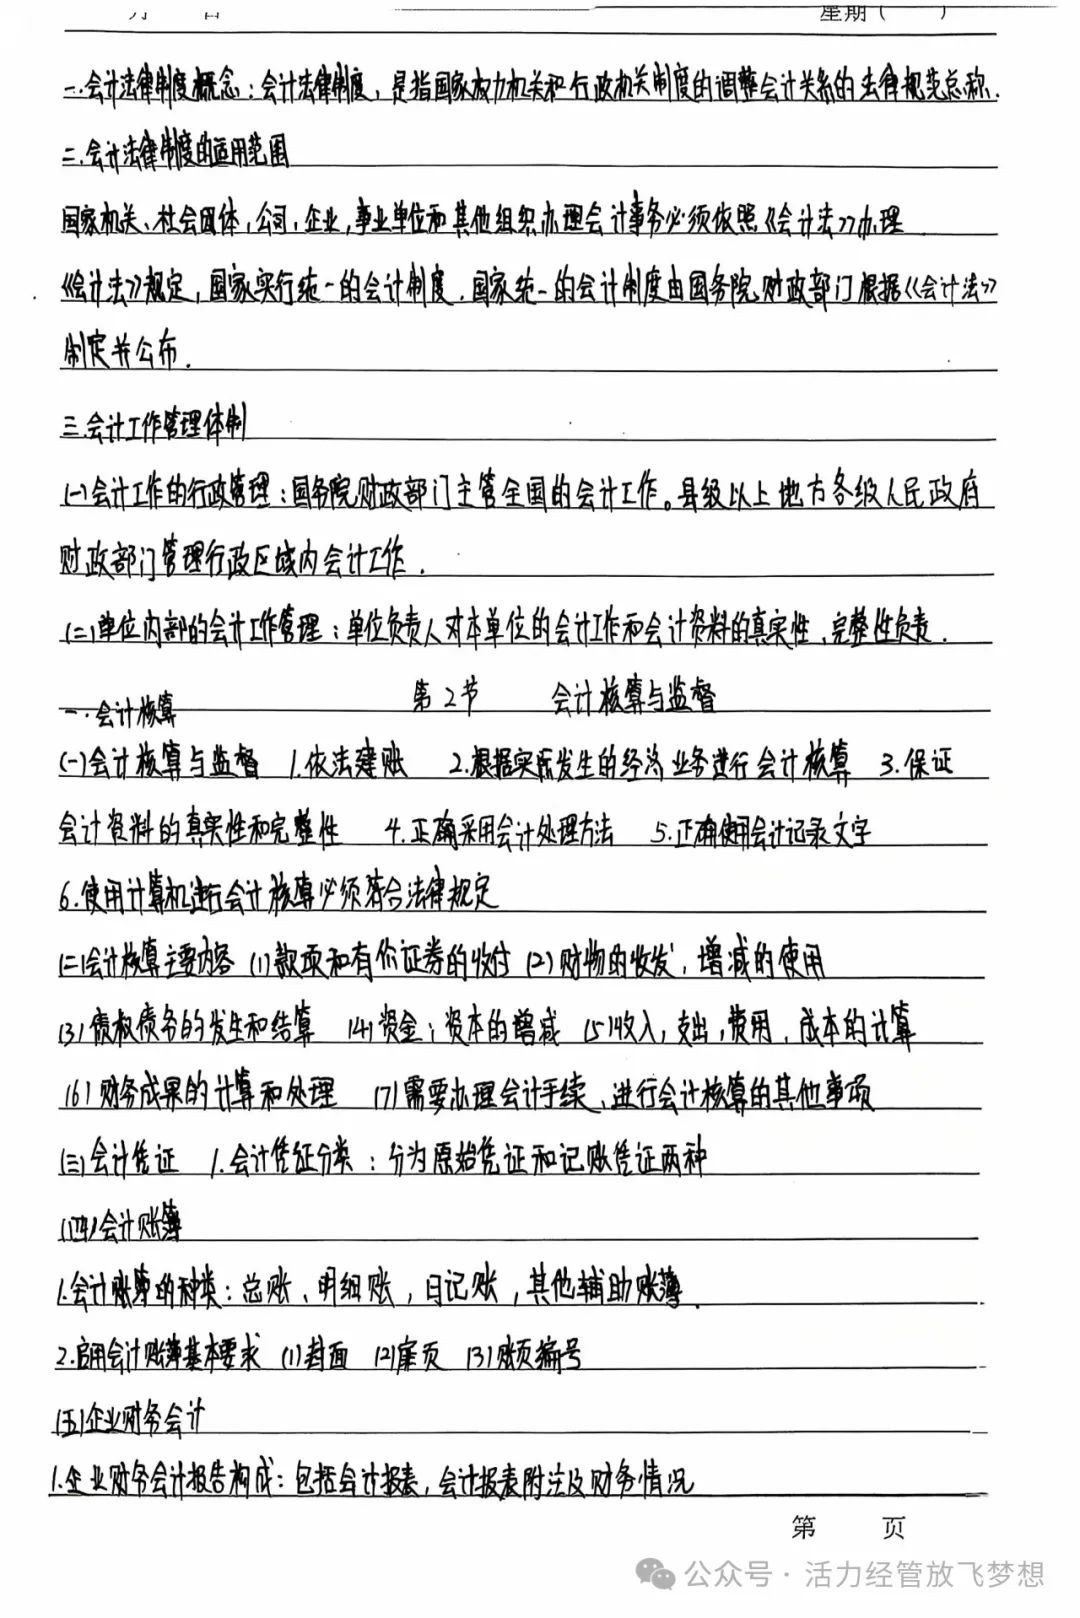 月 日 星期( )
一.会计法律制度概念:会计法律制度,是指国家权力机关和行政机关制度的调整会计关系的法律规范总称.
二.会计法律制度的适用范围
国家机关、社会团体,公司,企业,事业单位和其他组织办理会计事务必须依照《会计法》办理
《会计法》规定,国家实行统一的会计制度.国家统一的会计制度由国务院财政部门根据《会计法》
制定并公布.
三.会计工作管理体制
(一)会计工作的行政管理:国务院财政部门主管全国的会计工作。县级以上地方各级人民政府
财政部门管理行政区域内会计工作.
(二)单位内部的会计工作管理:单位负责人对本单位的会计工作和会计资料的真实性、完整性负责.
第2节 会计核算与监督
一.会计核算
(一)会计核算与监督 1.依法建账 2.根据实际发生的经济业务进行会计核算 3.保证
会计资料的真实性和完整性 4.正确采用会计处理方法 5.正确使用会计记录文字
6.使用计算机进行会计核算必须符合法律规定
(二)会计核算主要内容 (1)款项和有价证券的收付 (2)财物的收发,增减的使用
(3)债权债务的发生和结算 (4)资金;资本的增减 (5)收入,支出,费用,成本的计算
(6)财务成果的计算和处理 (7)需要办理会计手续、进行会计核算的其他事项
(三)会计凭证 1.会计凭证分类:分为原始凭证和记账凭证两种
(四)会计账簿
1.会计账簿的种类:总账、明细账,日记账,其他辅助账簿.
2.启用会计账簿基本要求 (1)封面 (2)扉页 (3)账页编号
(五)企业财务会计
1.企业财务会计报告构成:包括会计报表,会计报表附注及财务情况
第 页
公众号·活力经管放飞梦想